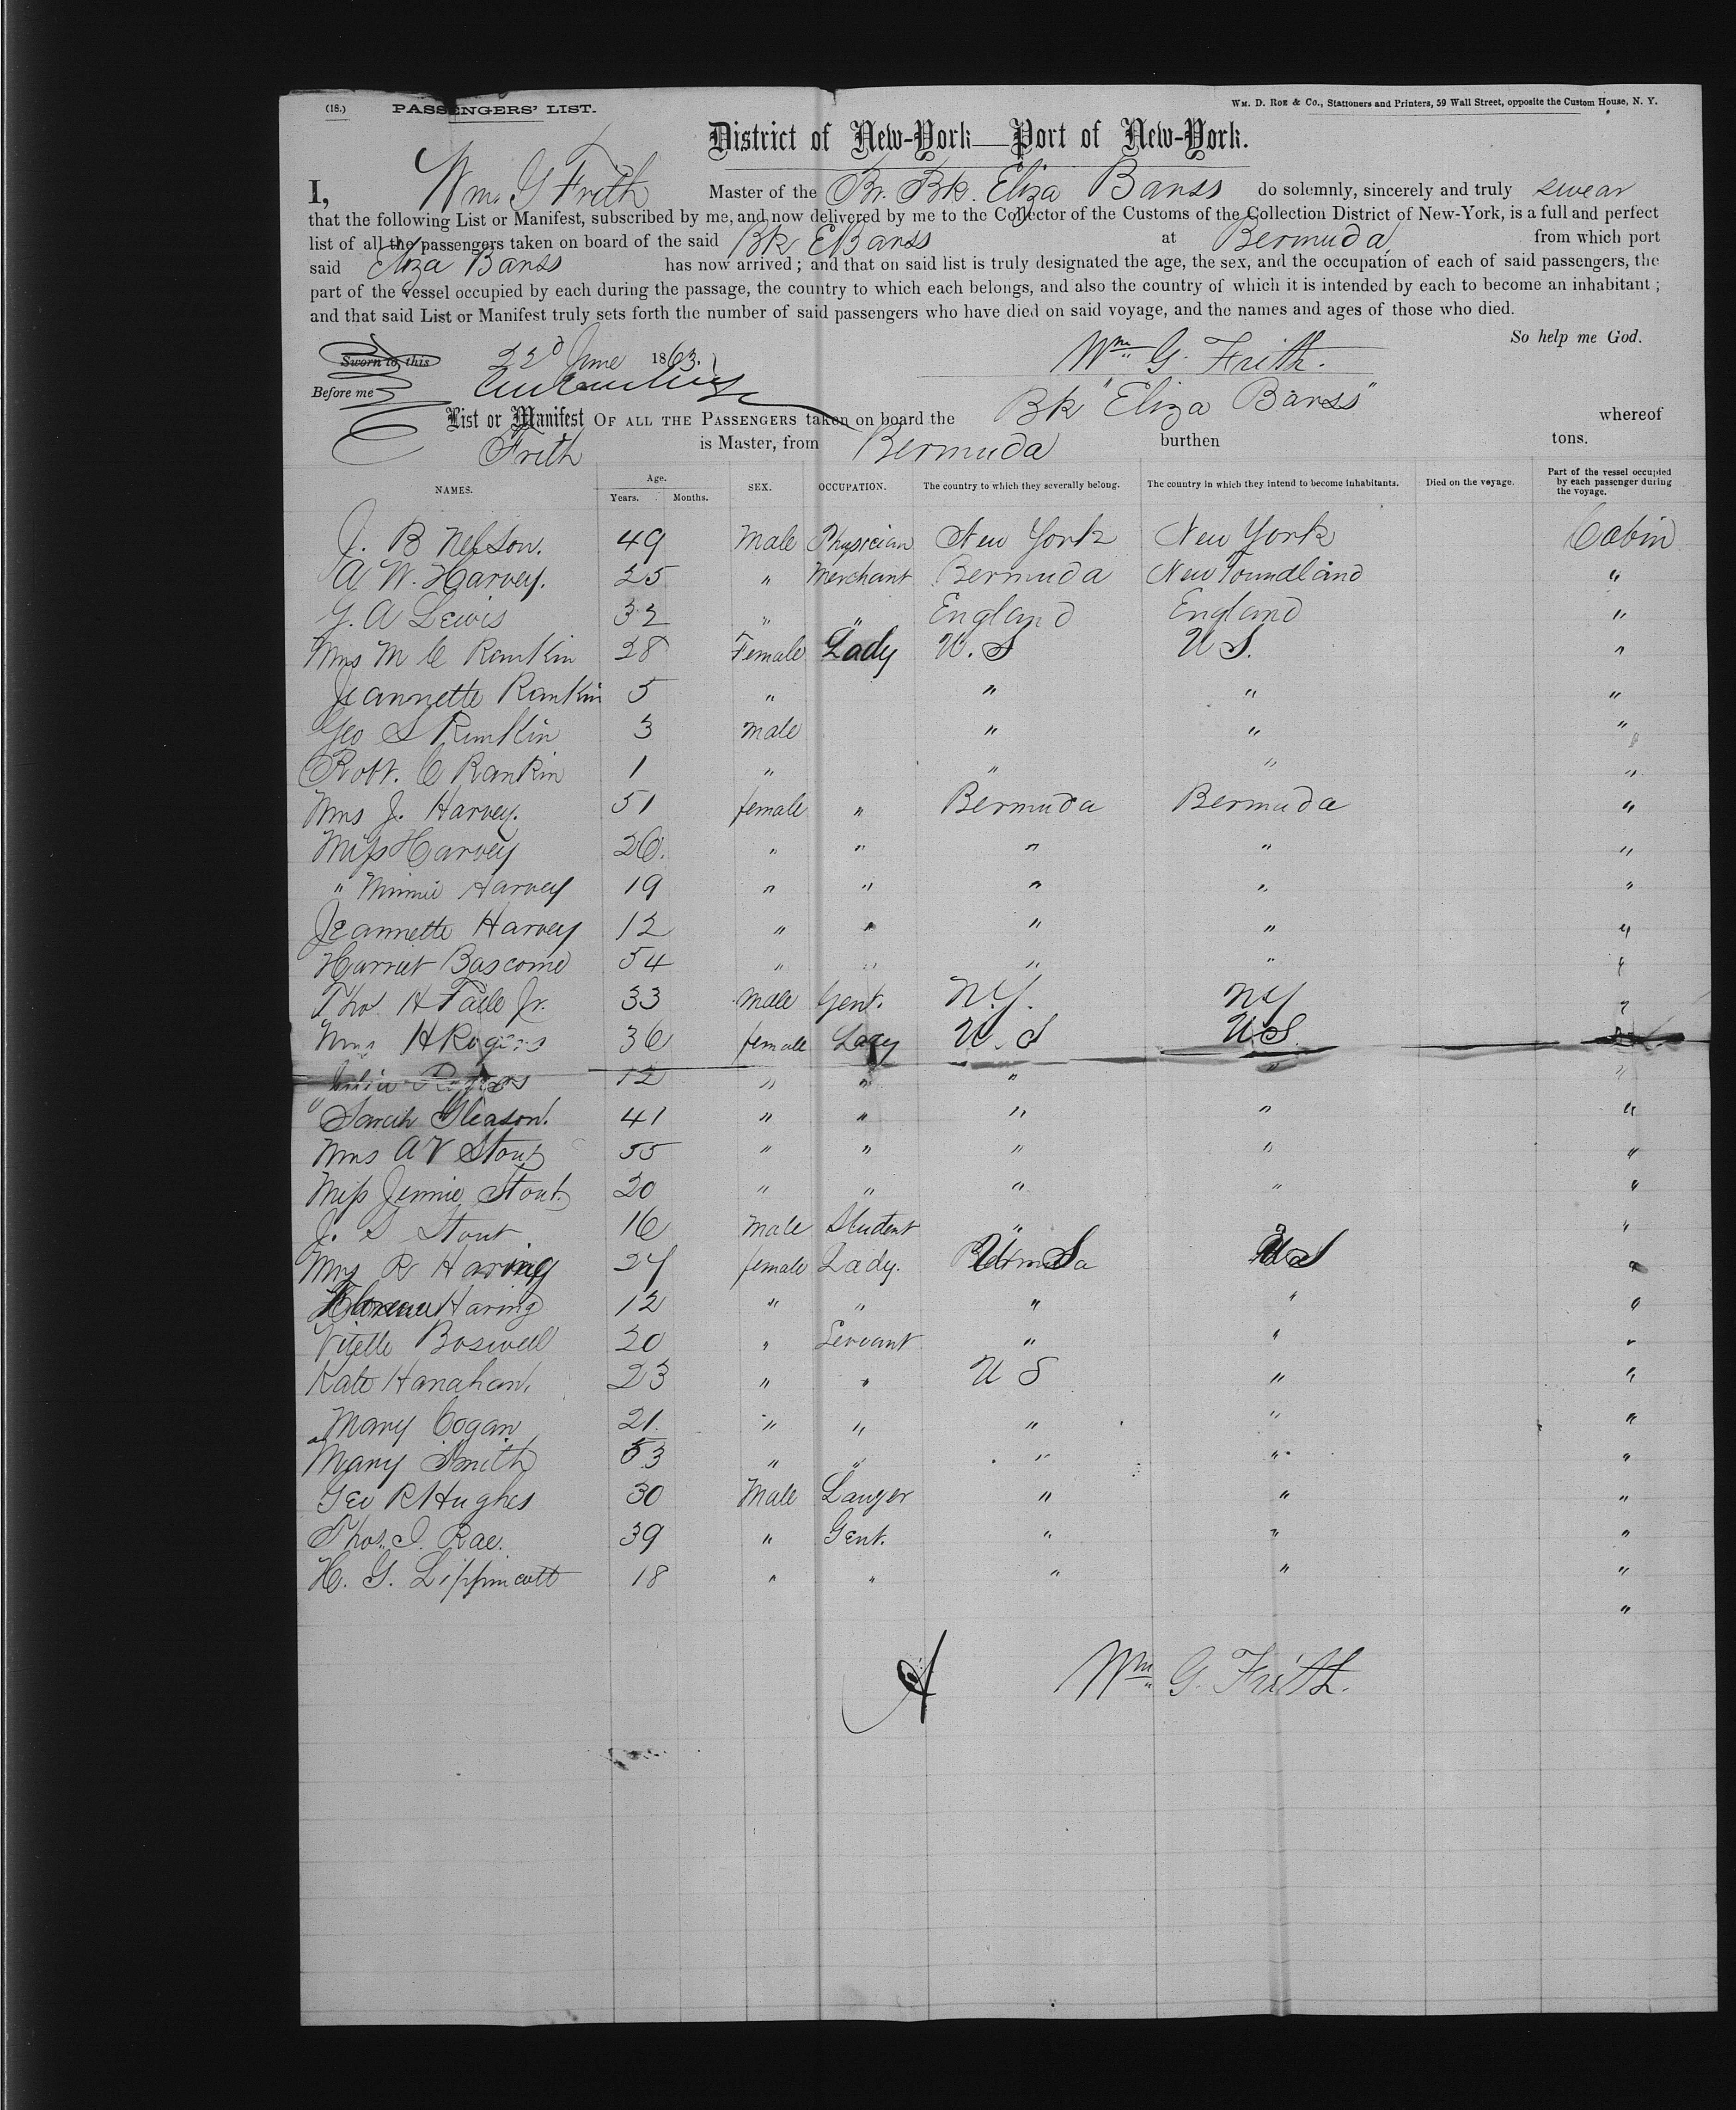 (18.) PASSENGERS' LIST. WM. D. ROE & CO., Stationers and Printers, 59 Wall Street, opposite the Custom House, N. Y.
District of New-York—Port of New-York.
I, Wm. G Frith Master of the Br. Bk. Eliza Barss do solemnly, sincerely and truly swear
that the following List or Manifest, subscribed by me, and now delivered by me to the Collector of the Customs of the Collection District of New-York, is a full and perfect
list of all the passengers taken on board of the said Bk E Barss at Bermuda from which port
said Eliza Barss has now arrived; and that on said list is truly designated the age, the sex, and the occupation of each of said passengers, the
part of the vessel occupied by each during the passage, the country to which each belongs, and also the country of which it is intended by each to become an inhabitant;
and that said List or Manifest truly sets forth the number of said passengers who have died on said voyage, and the names and ages of those who died.
So help me God.
Sworn to this 22d June 1863. Wm. G. Frith.
Before me
List or Manifest OF ALL THE PASSENGERS taken on board the Bk "Eliza Barss" whereof
Frith is Master, from Bermuda burthen tons.
NAMES. Age. Years. Months. SEX. OCCUPATION. The country to which they severally belong. The country in which they intend to become inhabitants. Died on the voyage. Part of the vessel occupied by each passenger during the voyage.
J. B Nelson. 49 Male Physician New York New York Cabin
A W. Harvey. 25 " Merchant Bermuda Newfoundland "
G. A Lewis 32 " " England England "
Mrs M C Rankin 28 Female Lady U. S U S. "
Jeannette Rankin 5 " " " "
Geo S Rankin 3 male " " "
Robt. C Rankin 1 " " " "
Mrs J. Harvey. 51 female " Bermuda Bermuda "
Miss Harvey 26. " " " " "
" Minnie Harvey 19 " " " " "
Jeannette Harvey 12 " " " " "
Harriet Bascome 54 " " " " "
Thos H Faile Jr. 33 male Gent. N.Y. NY "
Mrs H Rogers 36 female Lady U. S US. "
Julia Rogers 12 " " " " "
Sarah Gleason. 41 " " " " "
Mrs A V Stout 55 " " " " "
Miss Jennie Stout 20 " " " " "
J. S Stout 16 Male Student " " "
Mrs R Haring 27 female Lady. U S U S "
Haring 12 " " " " "
Boswell 20 " Servant " " "
Kate Hanahan. 23 " " U S " "
Mary Cogan 21. " " " " "
Mary Smith 53 " " " " "
Geo R Hughes 30 Male Lawyer " " "
Thos. J. Rae. 39 " Gent. " " "
H. G. Lippincott 18 " " " " "
"
Wm. G. Frith.